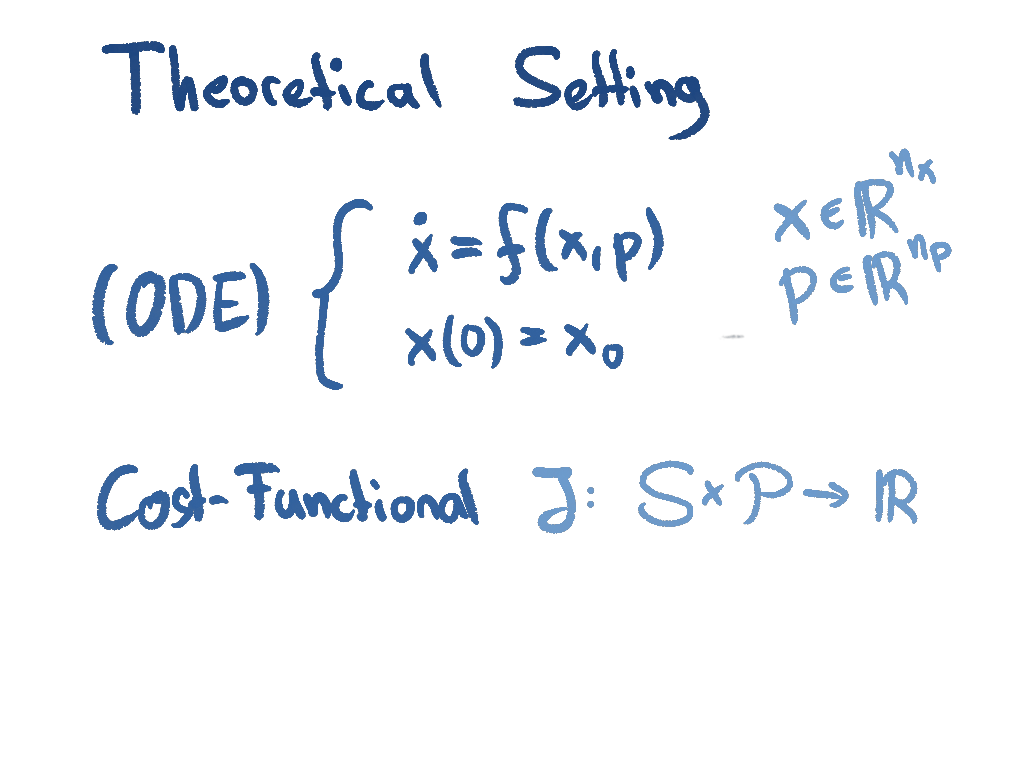 Theoretical Setting
(ODE) { ẋ = f(x,p)
x(0) = x₀
x ∈ ℝ^{n_x}
p ∈ ℝ^{n_p}
Cost-Functional J: S × P → ℝ